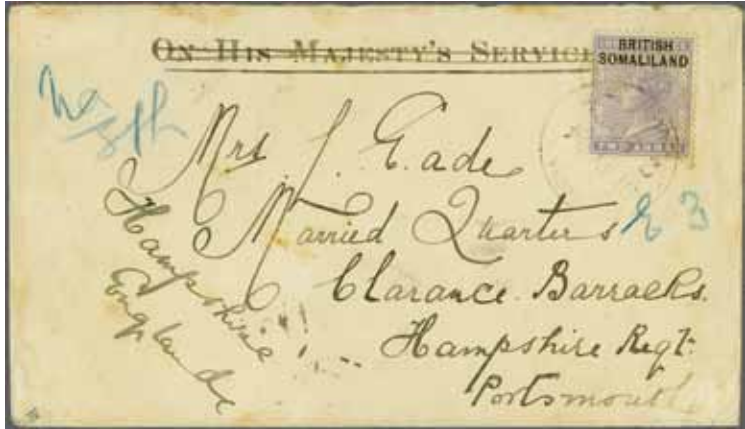 On His Majesty's Service
BRITISH
SOMALILAND
TWO ANNAS
Mrs J. Eade
Married Quarters E 3
Clarance Barracks.
Hampshire Regt.
Portsmouth
Hampshire
England